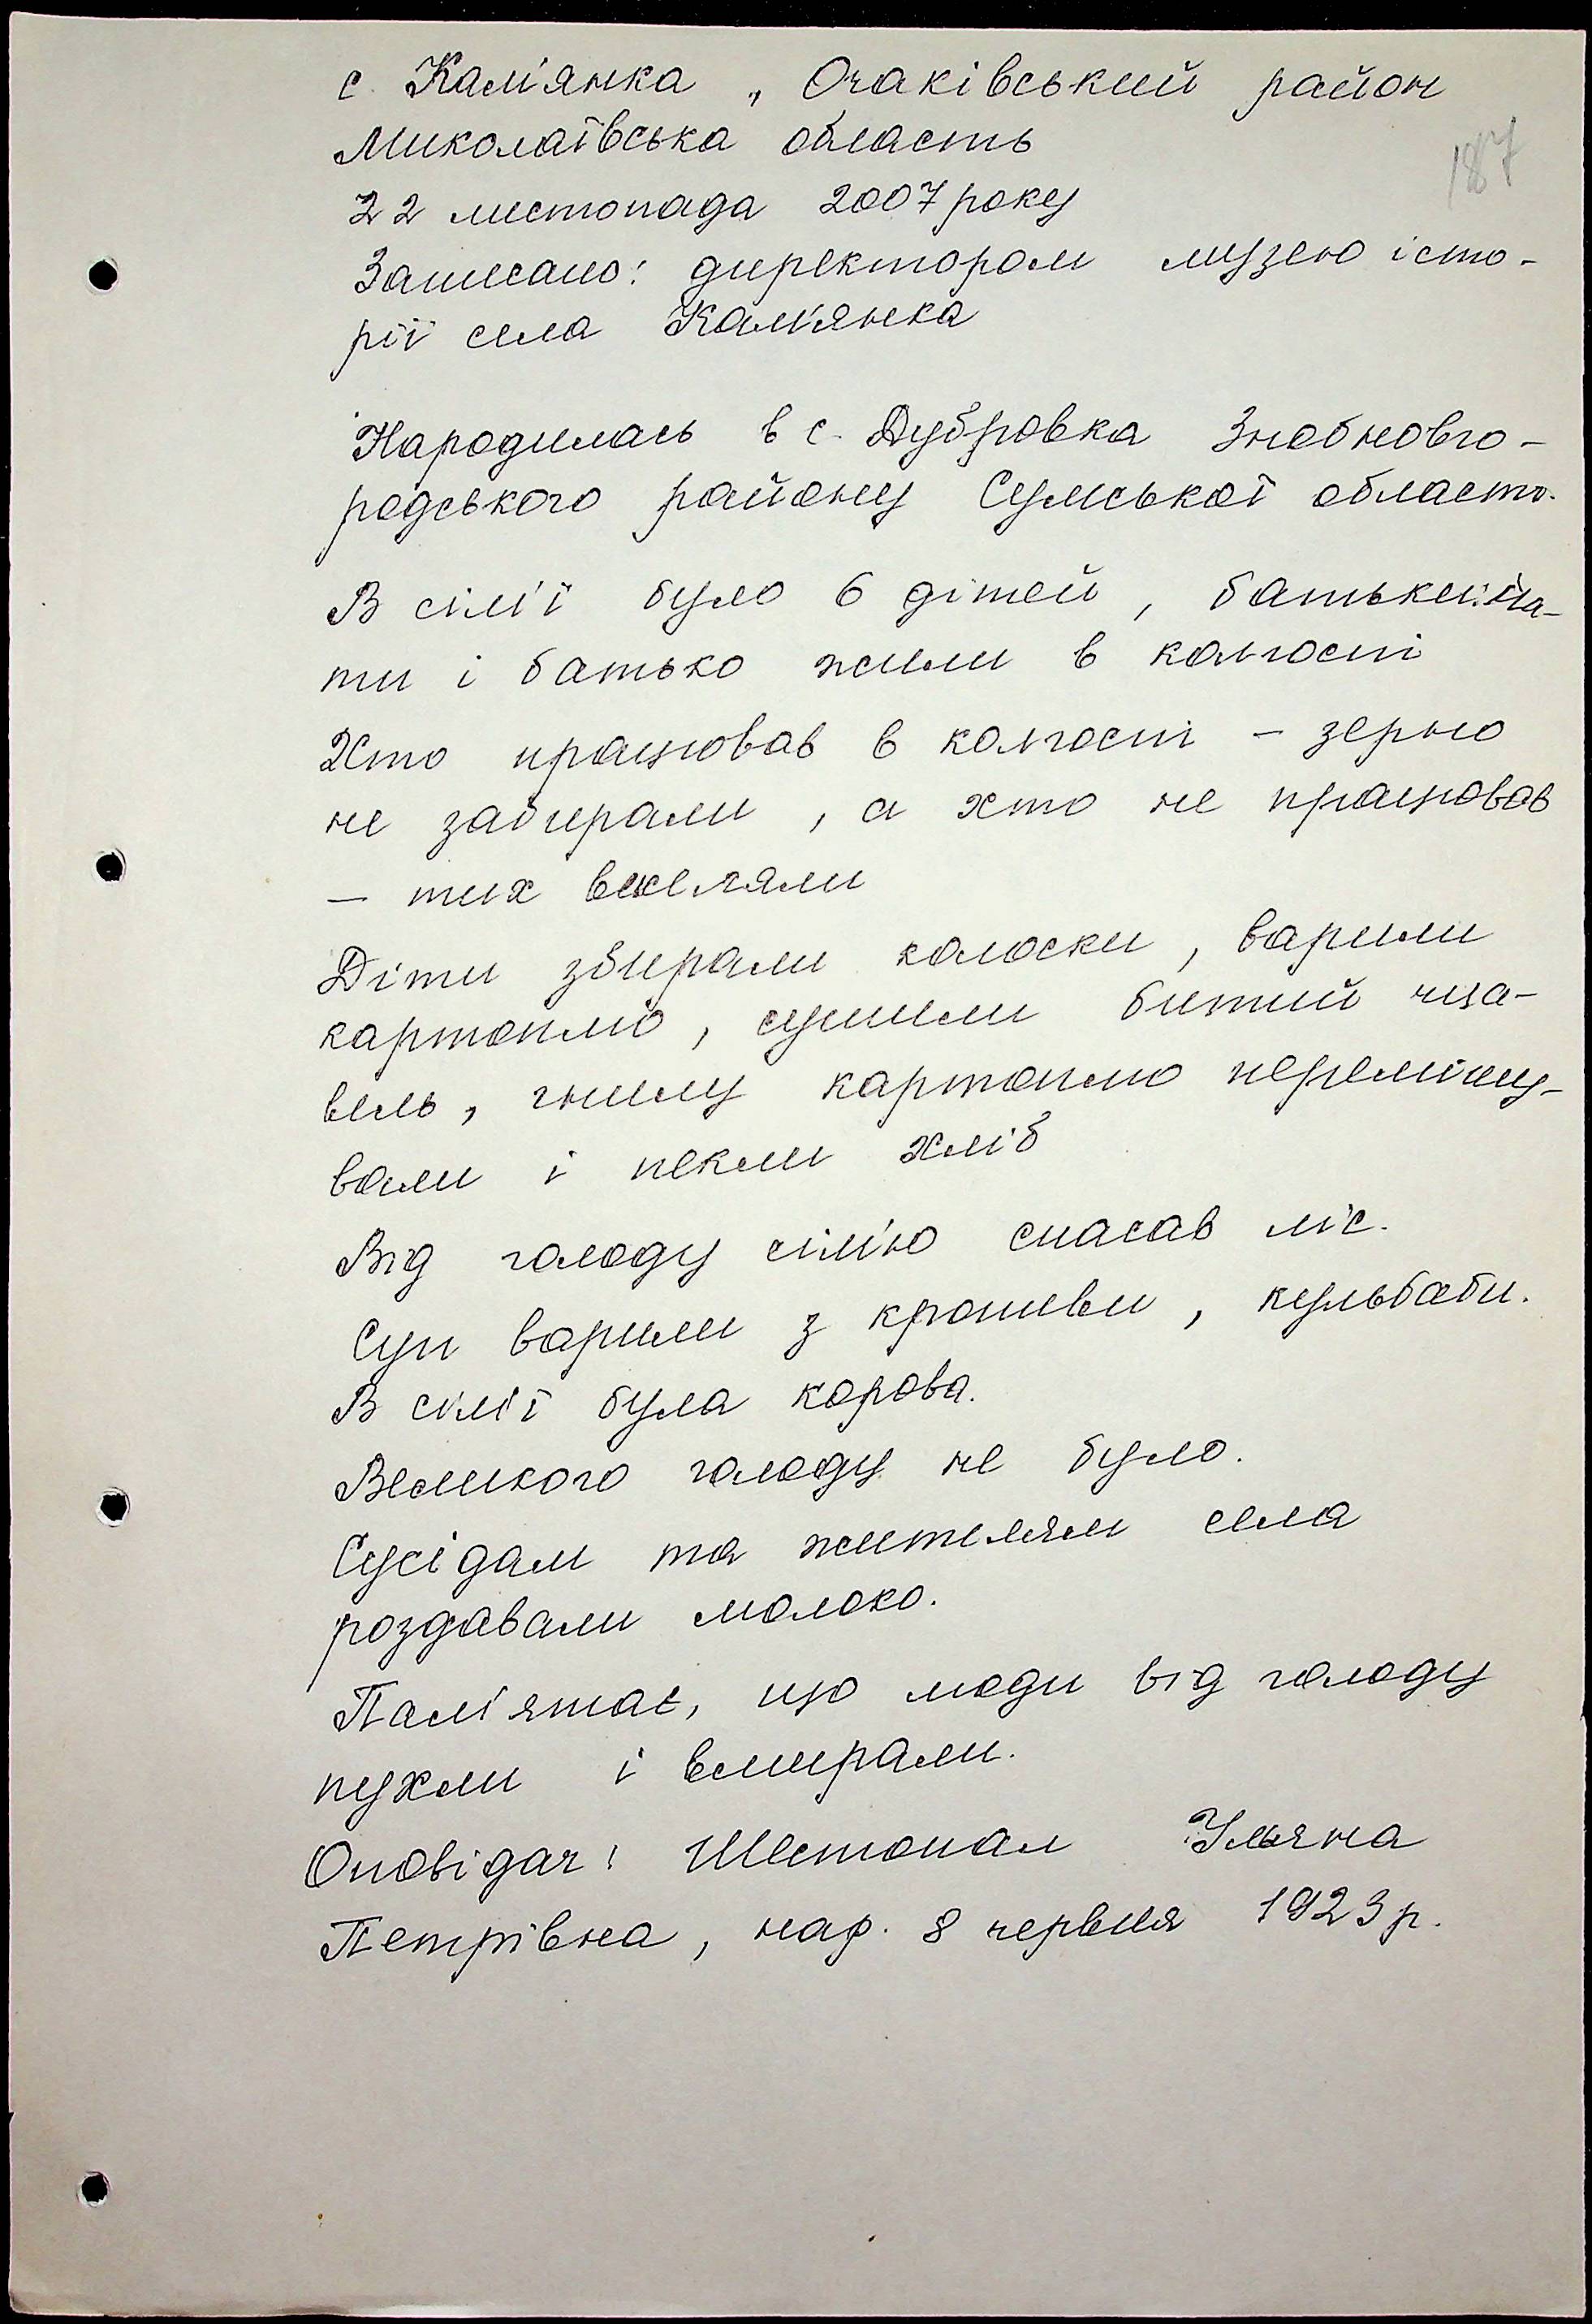 с. Кам'янка, Очаківський район
Миколаївська область
187
22 листопада 2007 року
Записано: директором музею істо-
рії села Кам'янка
Народилась в с. Дубровка Знобновго-
родського району Сумської області.
В сім'ї було 6 дітей, батьки: ма-
ти і батько жили в колгоспі
Хто працював в колгоспі - зерно
не забирали, а хто не працював
- тих виселяли
Діти збирали колоски, варили
картоплю, сушили битий щa-
вель, гнилу картоплю перемішу-
вали і пекли хліб
Від голоду сім'ю спасав ліс.
Суп варили з кропиви, кульбаби.
В сім'ї була корова.
Великого голоду не було.
Сусідам та жителям села
роздавали молоко.
Пам'ятає, що люди від голоду
пухли і вмирали.
Оповідач: Шестопал Уляна
Петрівна, нар. 8 червня 1923 р.